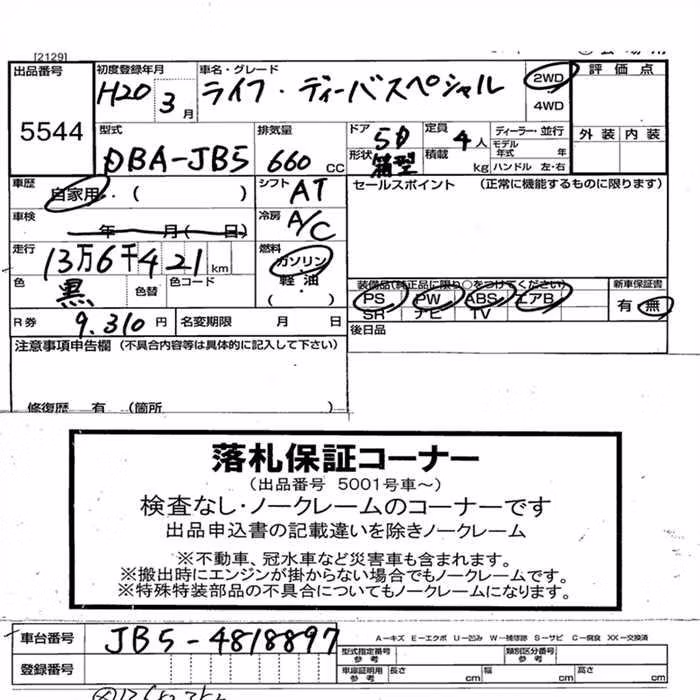 [2129]
出品番号 5544
初度登録年月 H20 3月
車名・グレード ライフ・ディーバスペシャル
2WD
4WD
評価点
外装 内装
型式 DBA-JB5
排気量 660 cc
ドア 5D
形状 箱型
定員 4人
積載 kg
ディーラー・並行
モデル年式 年
ハンドル 左・右
車歴 自家用・( )
シフト AT
セールスポイント (正常に機能するものに限ります)
車検 年 月( 日)
冷房 A/C
走行 13万6千421km
燃料 ガソリン
軽油
( )
色 黒 色替 色コード
装備品(純正品に限り○をつけてください)
PS PW ABS エアB
SR ナビ TV
新車保証書
有 無
R券 9.310円
名変期限 月 日
後日品
注意事項申告欄 (不具合内容等は具体的に記入して下さい)
修復歴 有 (箇所 )
落札保証コーナー
(出品番号 5001号車〜)
検査なし・ノークレームのコーナーです
出品申込書の記載違いを除きノークレーム
※不動車、冠水車など災害車も含まれます。
※搬出時にエンジンが掛からない場合でもノークレームです。
※特殊特装部品の不具合についてもノークレームになります。
車台番号 JB5-4818897
A－キズ E－エクボ U－凹み W－補修跡 S－サビ C－腐食 XX－交換済
型式指定番号 参考
類別区分番号 参考
登録番号
車庫証明用 参考 長さ cm 幅 cm 高さ cm